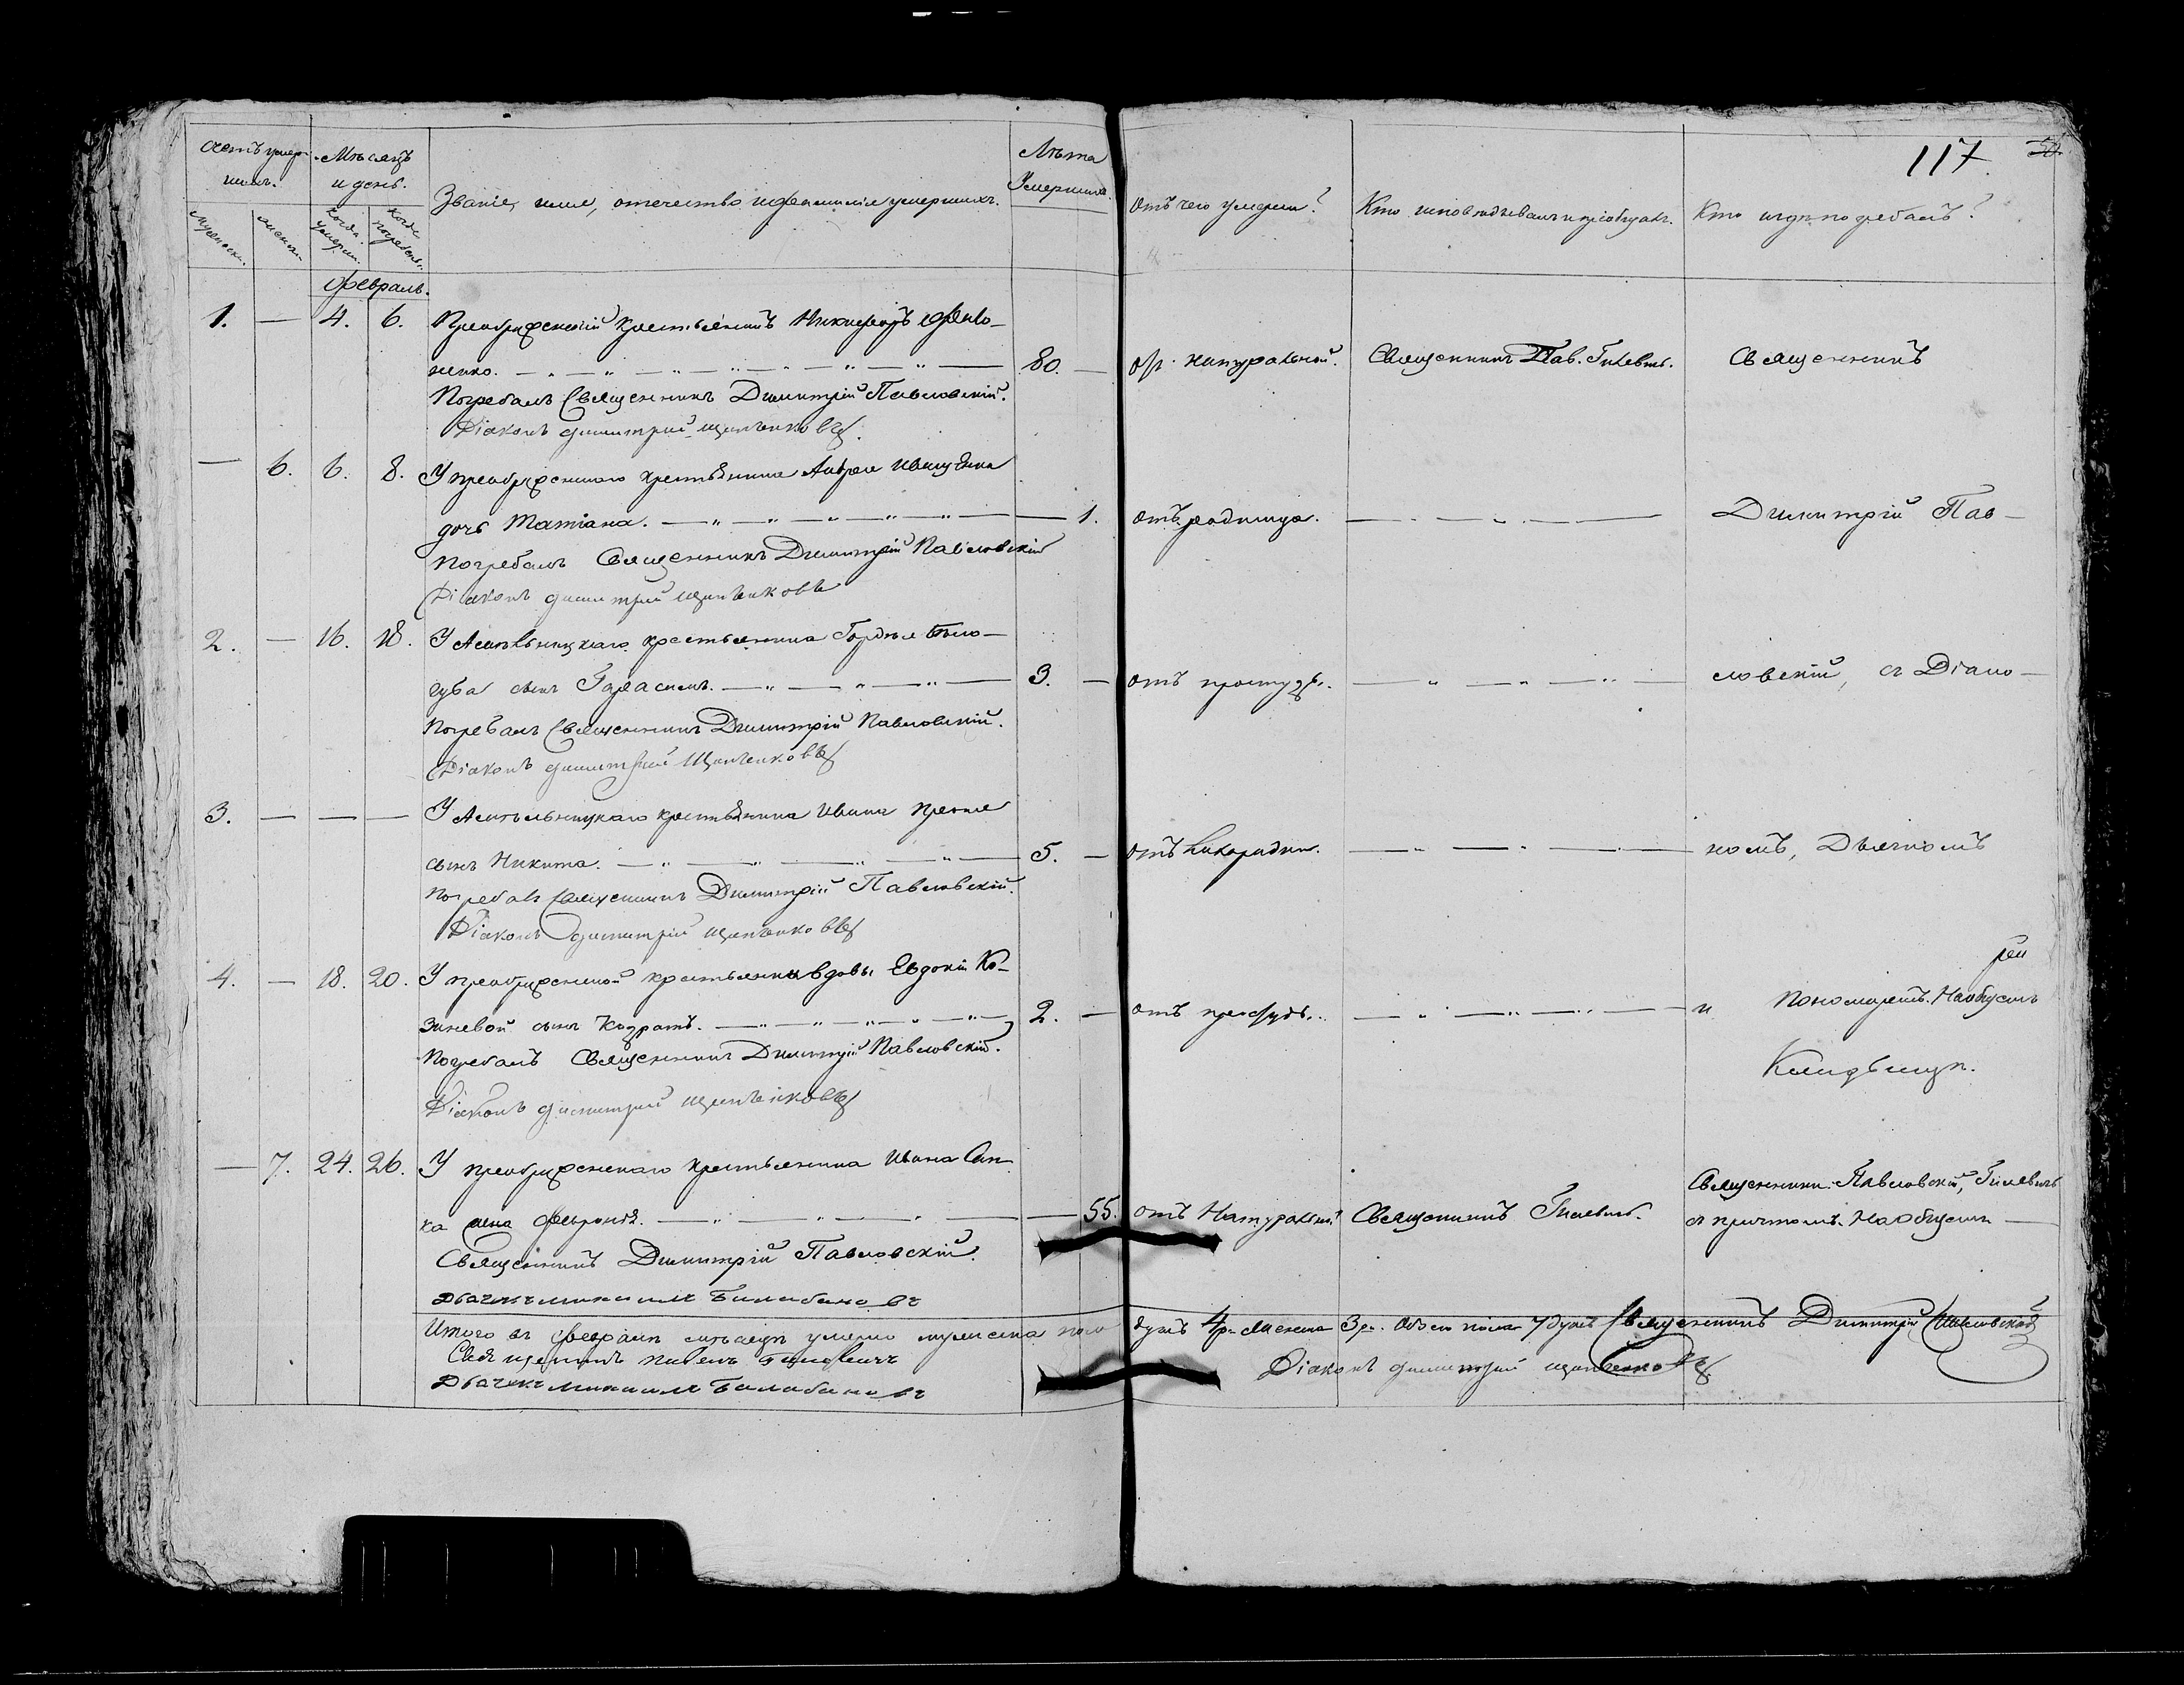 117. 50.
Счетъ умер-
шихъ.
Мѣсяцъ
и день.
Званіе, имя, отечество и фамилія умершихъ.
Лѣта
Умершихъ.
Отъ чего умерли?
Кто исповѣдывалъ и пріобщалъ.
Кто и гдѣ погребалъ?
Мужеска. Женска. Когда умерли. Когда погребены.
Февраль.
1. — 4. 6. Преображенскій крестьянинъ Никифоръ
ненко. 80. — отъ натуральной. Священникъ Пав. Гилевичъ. Священникъ
Погребалъ Священникъ Димитрій Павловскій.
Діаконъ Димитрій
— 6. 6. 8. У преображенскаго крестьянина Андрея
дочь Татіана. — 1. отъ родимца. Димитрій Пав—
Погребалъ Священникъ Димитрій Павловскій
Діаконъ Димитрій
2. — 16. 18. У крестьянина Гордѣя Бѣло—
губа сынъ Герасимъ. 3. — отъ простуды. ловскій, съ Діако—
Погребалъ Священникъ Димитрій Павловскій.
Діаконъ Димитрій
3. — — — У крестьянина Ивана
сынъ Никита. 5. — отъ лихорадки. номъ, Дьячкомъ
Погребалъ Священникъ Димитрій Павловскій.
Діаконъ Димитрій
4. — 18. 20. У преображенской крестьянки вдовы Евдокіи Ко—
зиневой сынъ Кодратъ. 2. — отъ простуды. и Пономаремъ. На общемъ
Погребалъ Священникъ Димитрій Павловскій.
Кладбищѣ.
Діаконъ Димитрій
— 7. 24. 26. У преображенскаго крестьянина Ивана
ка жена Февронія. — 55. отъ Натуральной Священникъ Гилевичъ.
Священники Павловскій, Гилевичъ
съ причтомъ. На общемъ —
Священникъ Димитрій Павловскій.
Дьячекъ Михаилъ Балабановъ
Итого въ Февралѣ мѣсяцѣ умерло мужеска пола душъ 4. женска 3. Обоего пола 7 душъ Священникъ Димитрій Павловскій
Священникъ Павелъ Гилевичъ
Діаконъ Димитрій
Дьячекъ Михаилъ Балабановъ